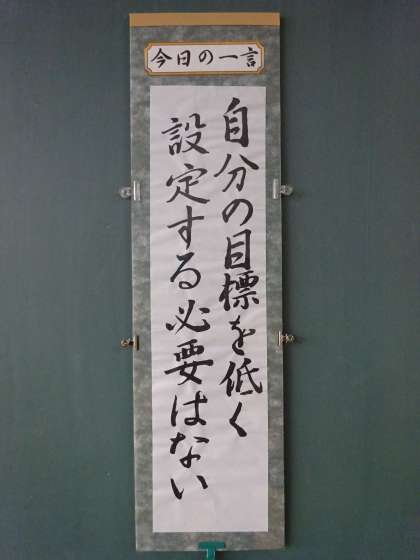 今日の一言
自分の目標を低く
設定する必要はない